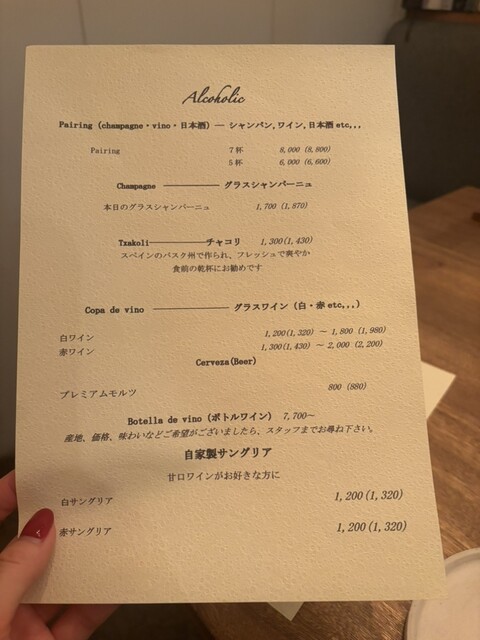 Alcoholic
Pairing (champagne・vino・日本酒) ― シャンパン,ワイン,日本酒 etc,,,
Pairing 7杯 8,000 (8,800)
5杯 6,000 (6,600)
Champagne ―――― グラスシャンパーニュ
本日のグラスシャンパーニュ 1,700 (1,870)
Txakoli――――――チャコリ 1,300(1,430)
スペインのバスク州で作られ、フレッシュで爽やか
食前の乾杯にお勧めです
Copa de vino ―――――― グラスワイン (白・赤 etc,,,)
白ワイン 1,200(1,320) ～ 1,800 (1,980)
赤ワイン 1,300(1,430) ～ 2,000 (2,200)
Cerveza(Beer)
プレミアムモルツ 800 (880)
Botella de vino (ボトルワイン) 7,700～
産地、価格、味わいなどご希望がございましたら、スタッフまでお尋ね下さい。
自家製サングリア
甘口ワインがお好きな方に
白サングリア 1,200(1,320)
赤サングリア 1,200(1,320)